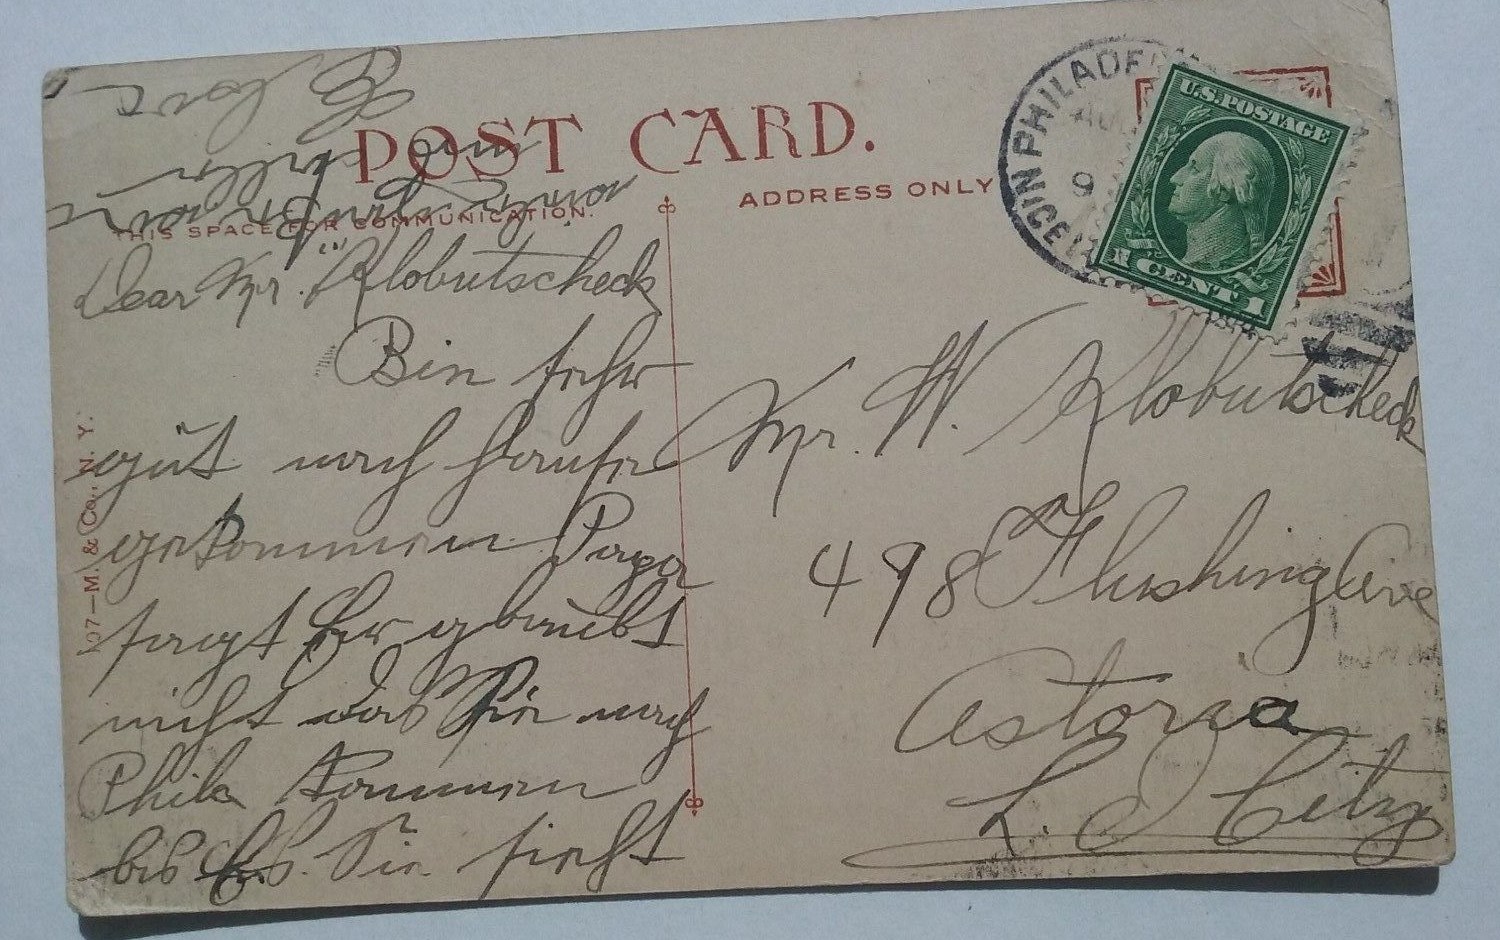 POST CARD.
THIS SPACE FOR COMMUNICATION.
ADDRESS ONLY
PHILADE
AU
9
U.S. POSTAGE
1 CENT 1
107—M. & Co., N. Y.
Dear Mr. Klobutscheck
Bin sehr
gut nach Hause
gekommen Papa
sagt Er glaubt
nicht das Sie nach
Phila kommen
bis Es Sie sieht
Mr. W. Klobutscheck
498 Flushing Ave
Astoria
L. I City